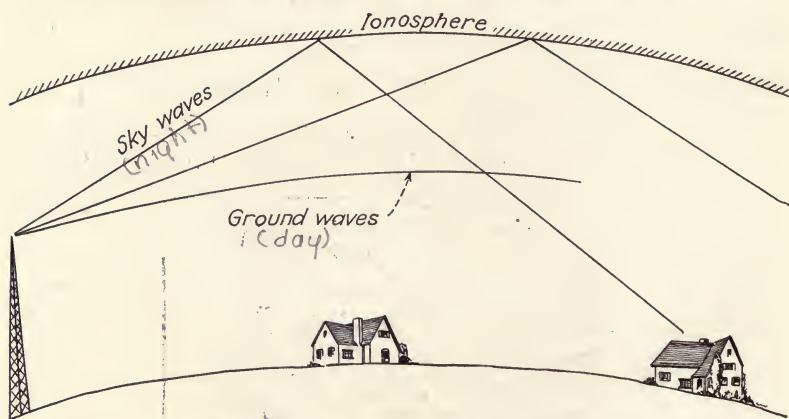 Ionosphere
Sky waves
(night)
Ground waves
(day)